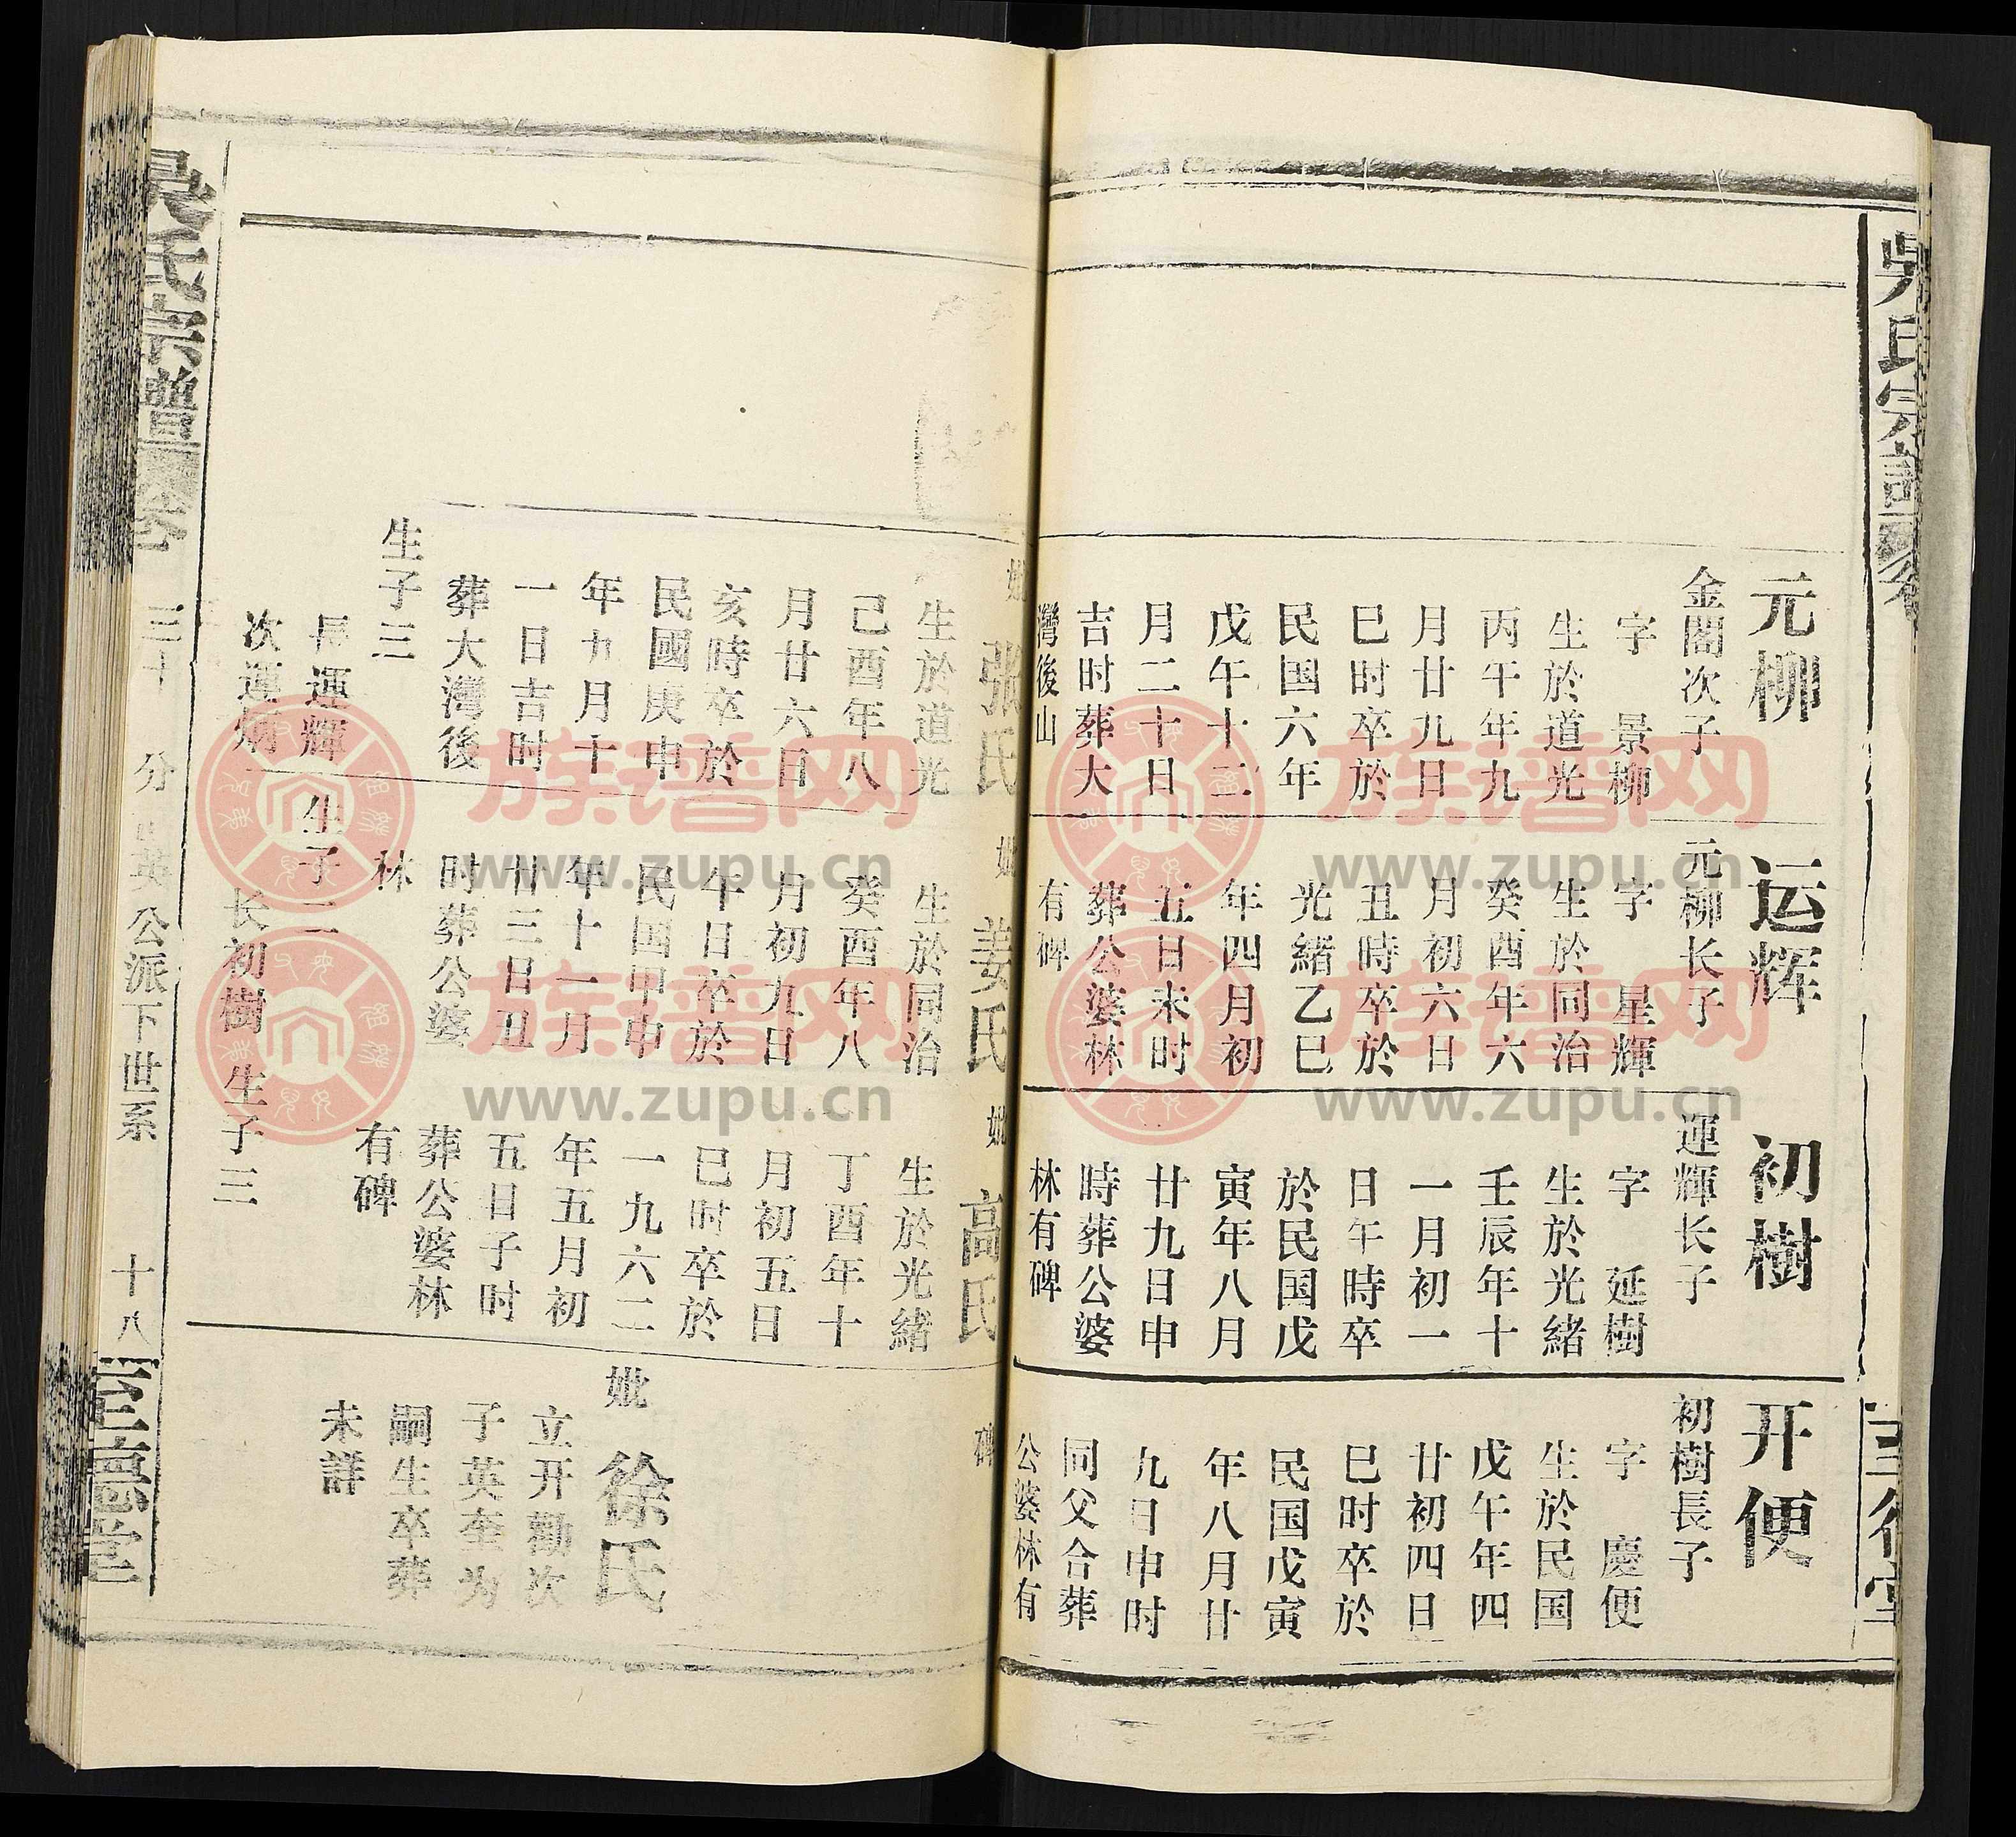 吳氏宗譜
元柳
金閣次子
字 景柳
生於道光
丙午年九
月廿九日
巳时卒於
民国六年
戊午十二
月二十日
吉时葬大
灣後山
妣
張氏
生於道光
己酉年八
月廿六日
亥時卒於
民國庚申
年九月十
一日吉时
葬大灣後
生子三
長運輝
次運炳
运辉
元柳长子
字 星輝
生於同治
癸酉年六
月初六日
丑時卒於
光緒乙巳
年四月初
五日未时
葬公婆林
有碑
妣
姜氏
生於同治
癸酉年八
月初九日
午日卒於
民国甲申
年十一月
廿三日丑
时葬公婆
林
生子二
长初樹
初樹
運輝长子
字 延樹
生於光緒
壬辰年十
一月初一
日午時卒
於民国戊
寅年八月
廿九日申
時葬公婆
林有碑
妣
高氏
生於光緒
丁酉年十
月初五日
巳时卒於
一九六二
年五月初
五日子时
葬公婆林
有碑
生子三
开便
初樹長子
字 慶便
生於民国
戊午年四
廿初四日
巳时卒於
民国戊寅
年八月廿
九日申时
同父合葬
公婆林有
碑
妣
徐氏
立开勤次
子英奎为
嗣生卒葬
未詳
吳氏宗譜
三十 分 英公派下世系 十八
至德堂
族谱网
www.zupu.cn
族谱网
www.zupu.cn
族谱网
www.zupu.cn
族谱网
www.zupu.cn